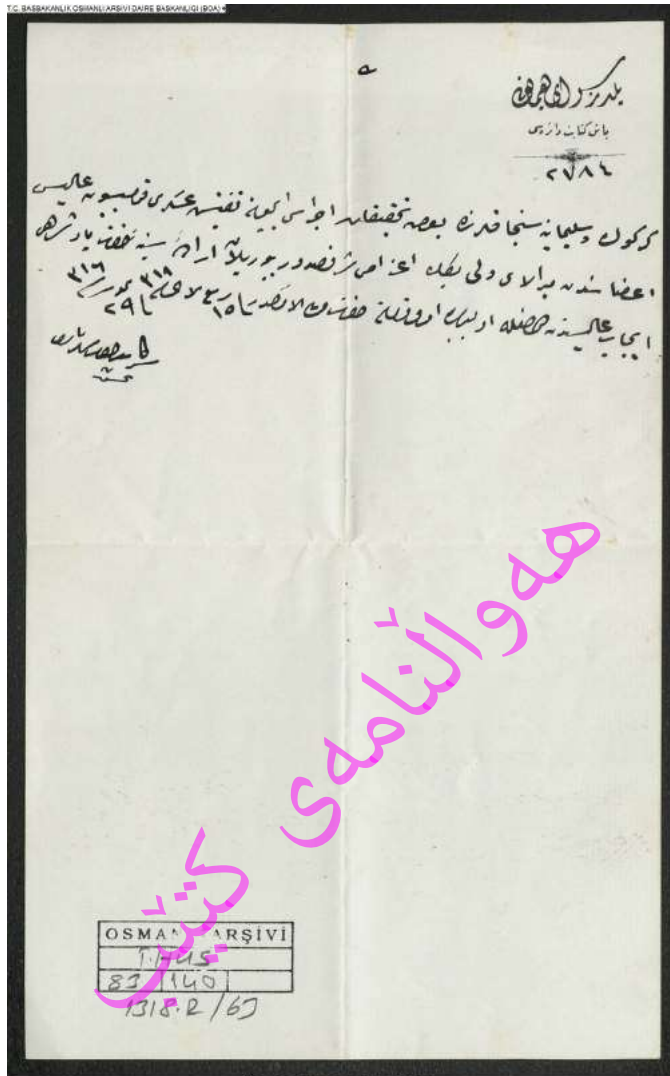 T.C. BAŞBAKANLIK OSMANLI ARŞİVİ DAİRE BAŞKANLIĞI (BOA)
یلدز سرای همایونی
باش کتابت دائره سی
٢٧٨٤
كركوك وسليمانيه سنجاقلرنده بعض تحقيقات اجراسى ايچون تفتيش عسكرى قوميسيون عاليسى
اعضاسندن ميرالاى ولى بكك اعزامى شرفصدور بوريلان اراده سنيه حضرت پادشاهى
ايجاب عاليسندن اولمغله اولبابده امر وفرمان حضرت من له الامركدر فى ١٥ ربيع الاخر ٣١٨ فى ٢٩ تموز ٣١٦
هەواڵنامەی کتێب
OSMANLI ARŞİVİ
İ.HUS
83 140
1318.R/63